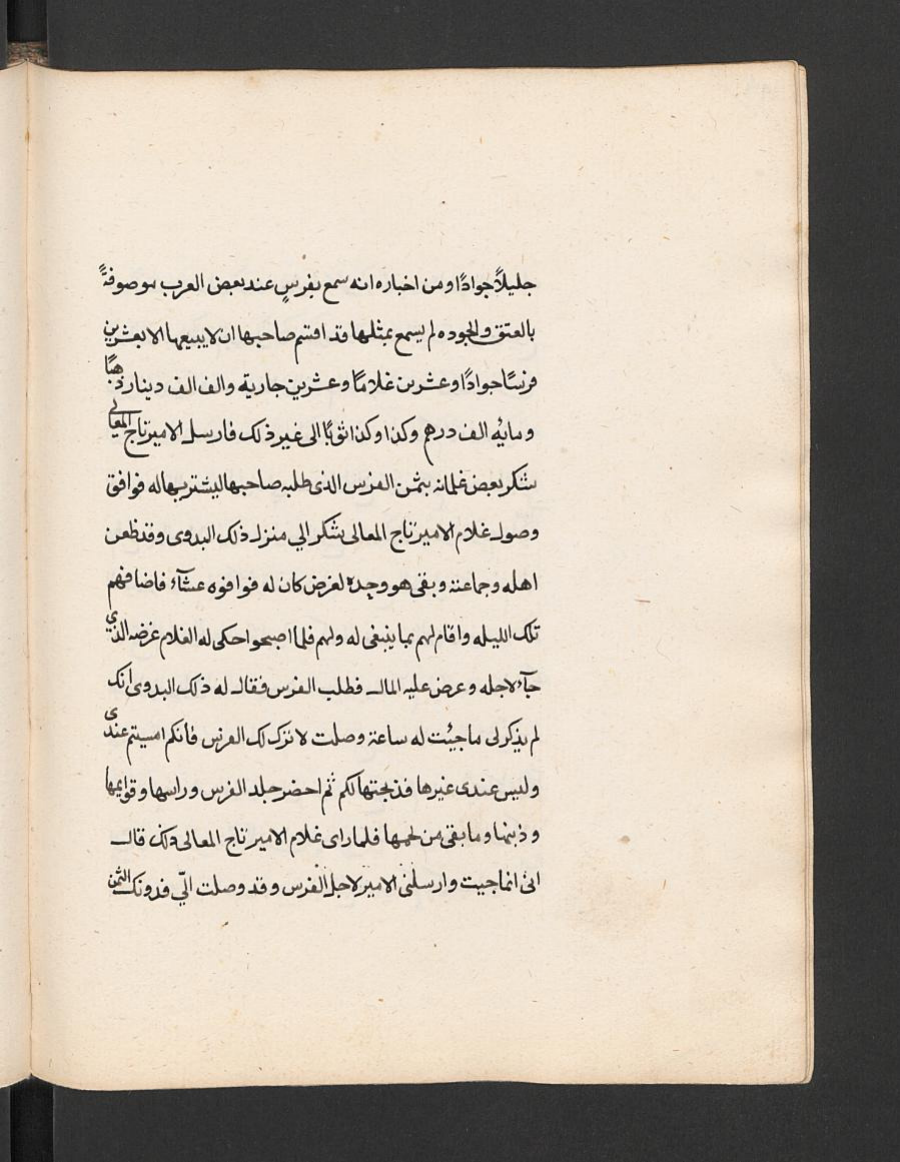 جليلاً جوادًا ومن اخباره انه سمع بفرسٍ عند بعض العرب موصوفةً
بالعتق والجوده لم يسمع بمثلها قد اقسم صاحبها ان لا يبيعها الا بعشرين
فرسًا جوادًا وعشرين غلامًا وعشرين جارية والف الف دينار ذهبًا
ومايه الف درهم وكذا وكذا ثوبًا الى غير ذلك فارسل الامير تاج المعالى
شكر بعض غلمانه بثمن الفرس الذى طلبه صاحبها ليشتريها له فوافق
وصول غلام الامير تاج المعالى شكر الي منزل ذلك البدوى وقد ظعن
اهله وجماعته وبقى هو وحده لغرض كان له فوافوه عشآء فاضافهم
تلك الليله واقام لهم بما ينبغى له ولهم فلما اصبحوا حكى له الغلام غرضه الذي
جآء لاجله وعرض عليه المال فطلب الفرس فقال له ذلك البدوى انك
لم يذكر لى ما جئت له ساعة وصلت لا ترك لك الفرس فانكم امسيتم عندى
وليس عندى غيرها فذبحتها لكم ثم احضر جلد الفرس وراسها وقوايمها
وذنبها وما بقى من لحمها فلما راى غلام الامير تاج المعالى ذلك قال
انى انما جيت وارسلنى الامير لاجل الفرس وقد وصلت الّي فدونك الثمن